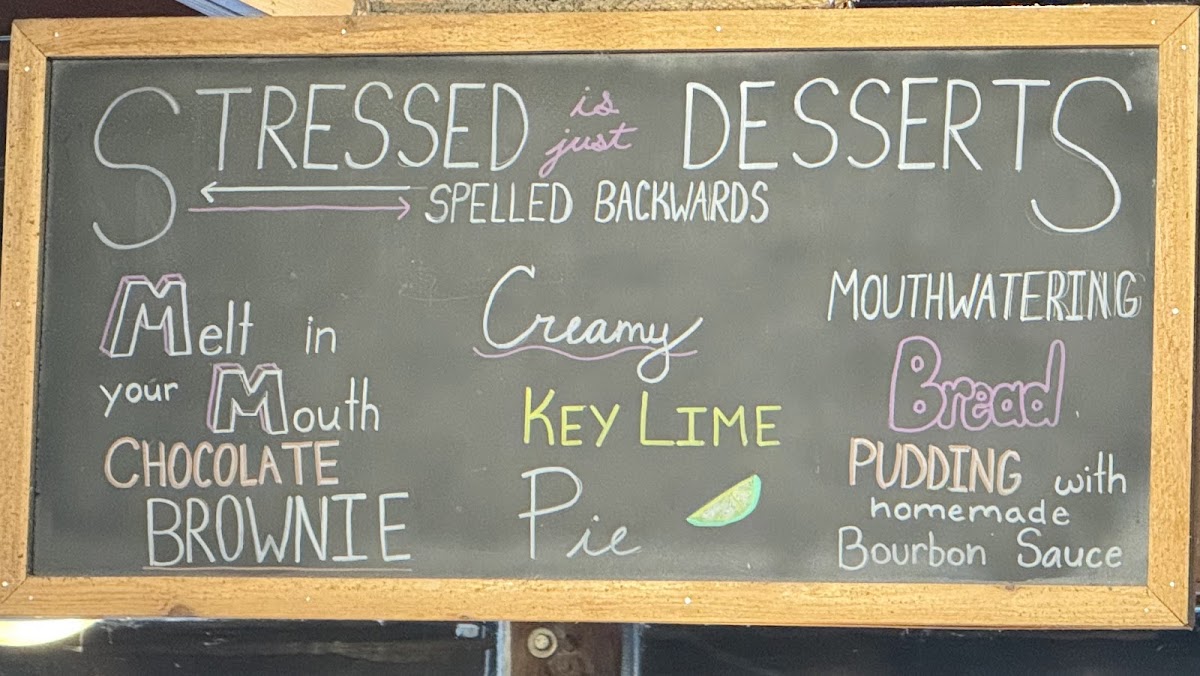 STRESSED is just DESSERTS
SPELLED BACKWARDS
Melt in
your Mouth
CHOCOLATE
BROWNIE
Creamy
KEY LIME
Pie
MOUTHWATERING
Bread
PUDDING with
homemade
Bourbon Sauce